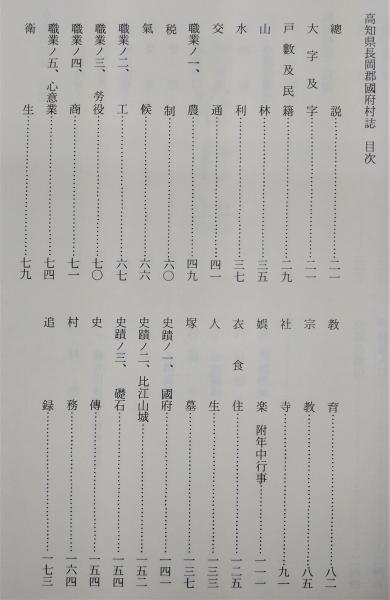 高知県長岡郡國府村誌 目次
總説……二一
大字及字……二一
戸數及民籍……二九
山林……三五
水利……三七
交通……四一
職業ノ一、農……四九
税制……六〇
氣候……六六
職業ノ二、工……六七
職業ノ三、勞役……七〇
職業ノ四、商……七一
職業ノ五、心意業……七四
衛生……七九
教育……八二
宗教……八五
社寺……九一
娯楽 附年中行事……一一一
衣食住……一二五
人生……一三三
塚墓……一三七
史蹟ノ一、國府……一四一
史蹟ノ二、比江山城……一五二
史蹟ノ三、礎石……一五四
史傳……一五四
村務……一六四
追録……一七三